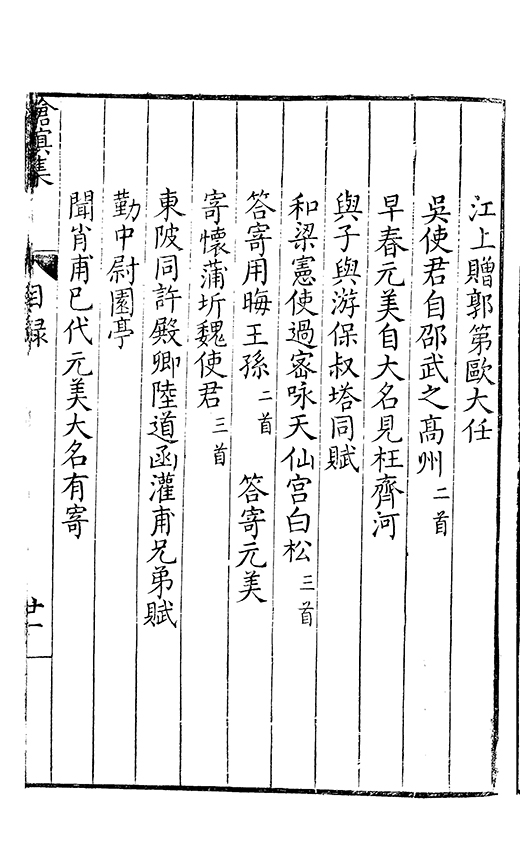 江上贈郭第歐大任
吳使君自邵武之髙州二首
早春元美自大名見枉齊河
與子與游保叔塔同賦
和梁憲使過宻咏天仙宫白松三首
答寄用晦王孫二首 答寄元美
寄懷蒲圻魏使君三首
東陂同許殿卿陸道函灌甫兄弟賦
勤中尉園亭
聞肖甫已代元美大名有寄
滄溟集 目録 廿一